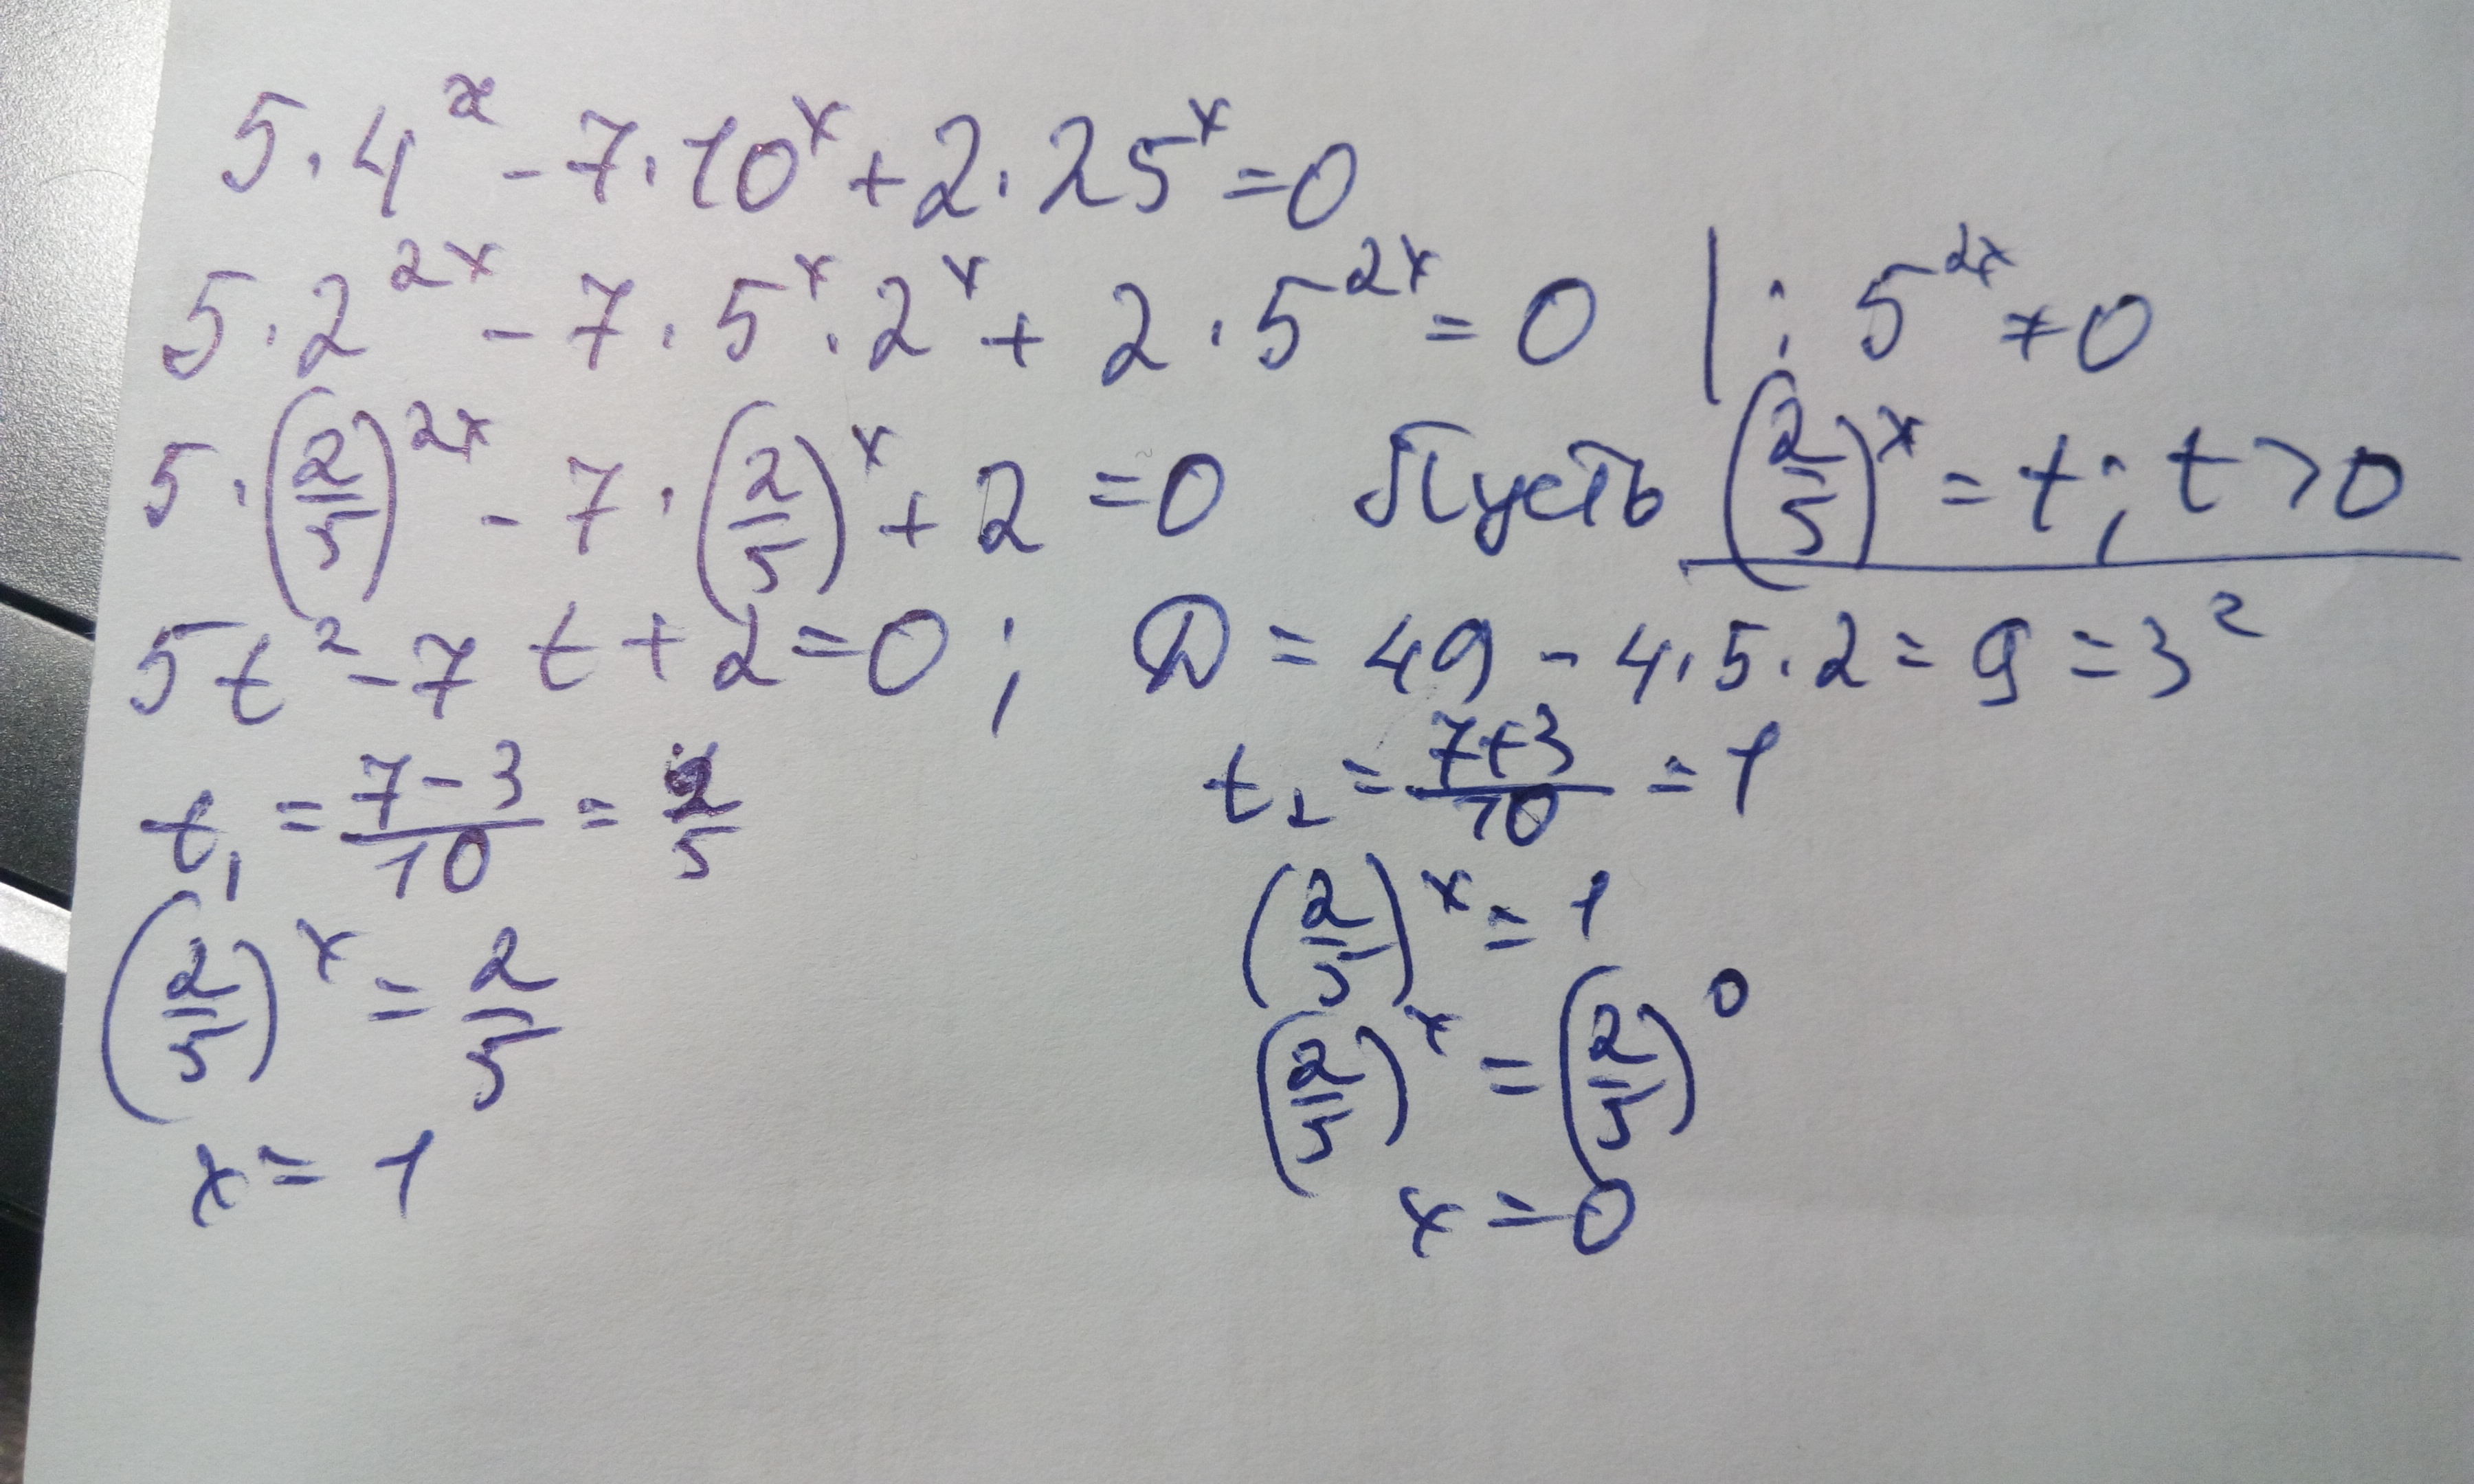 5·4^x - 7·10^x + 2·25^x = 0
5·2^(2x) - 7·5^x·2^x + 2·5^(2x) = 0 | : 5^(2x) ≠ 0
5·(2/5)^(2x) - 7·(2/5)^x + 2 = 0 Пусть (2/5)^x = t; t > 0
5t² - 7t + 2 = 0; D = 49 - 4·5·2 = 9 = 3²
t₁ = (7-3)/10 = 2/5 t₂ = (7+3)/10 = 1
(2/5)^x = 2/5 (2/5)^x = 1
(2/5)^x = (2/5)^0
x = 1 x = 0